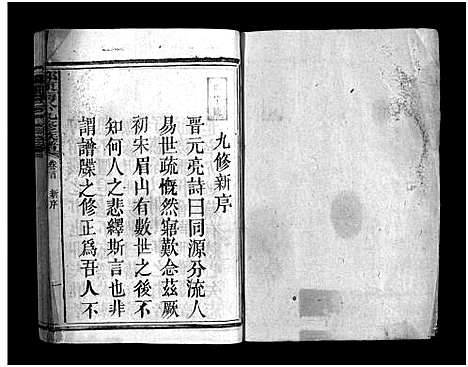 九修新序
晉元亮詩曰同源分流人
易世疏慨然寤歎念茲厥
初宋眉山有數世之後不
知何人之悲繹斯言也非
謂譜牒之修正爲吾人不
卷首 新序